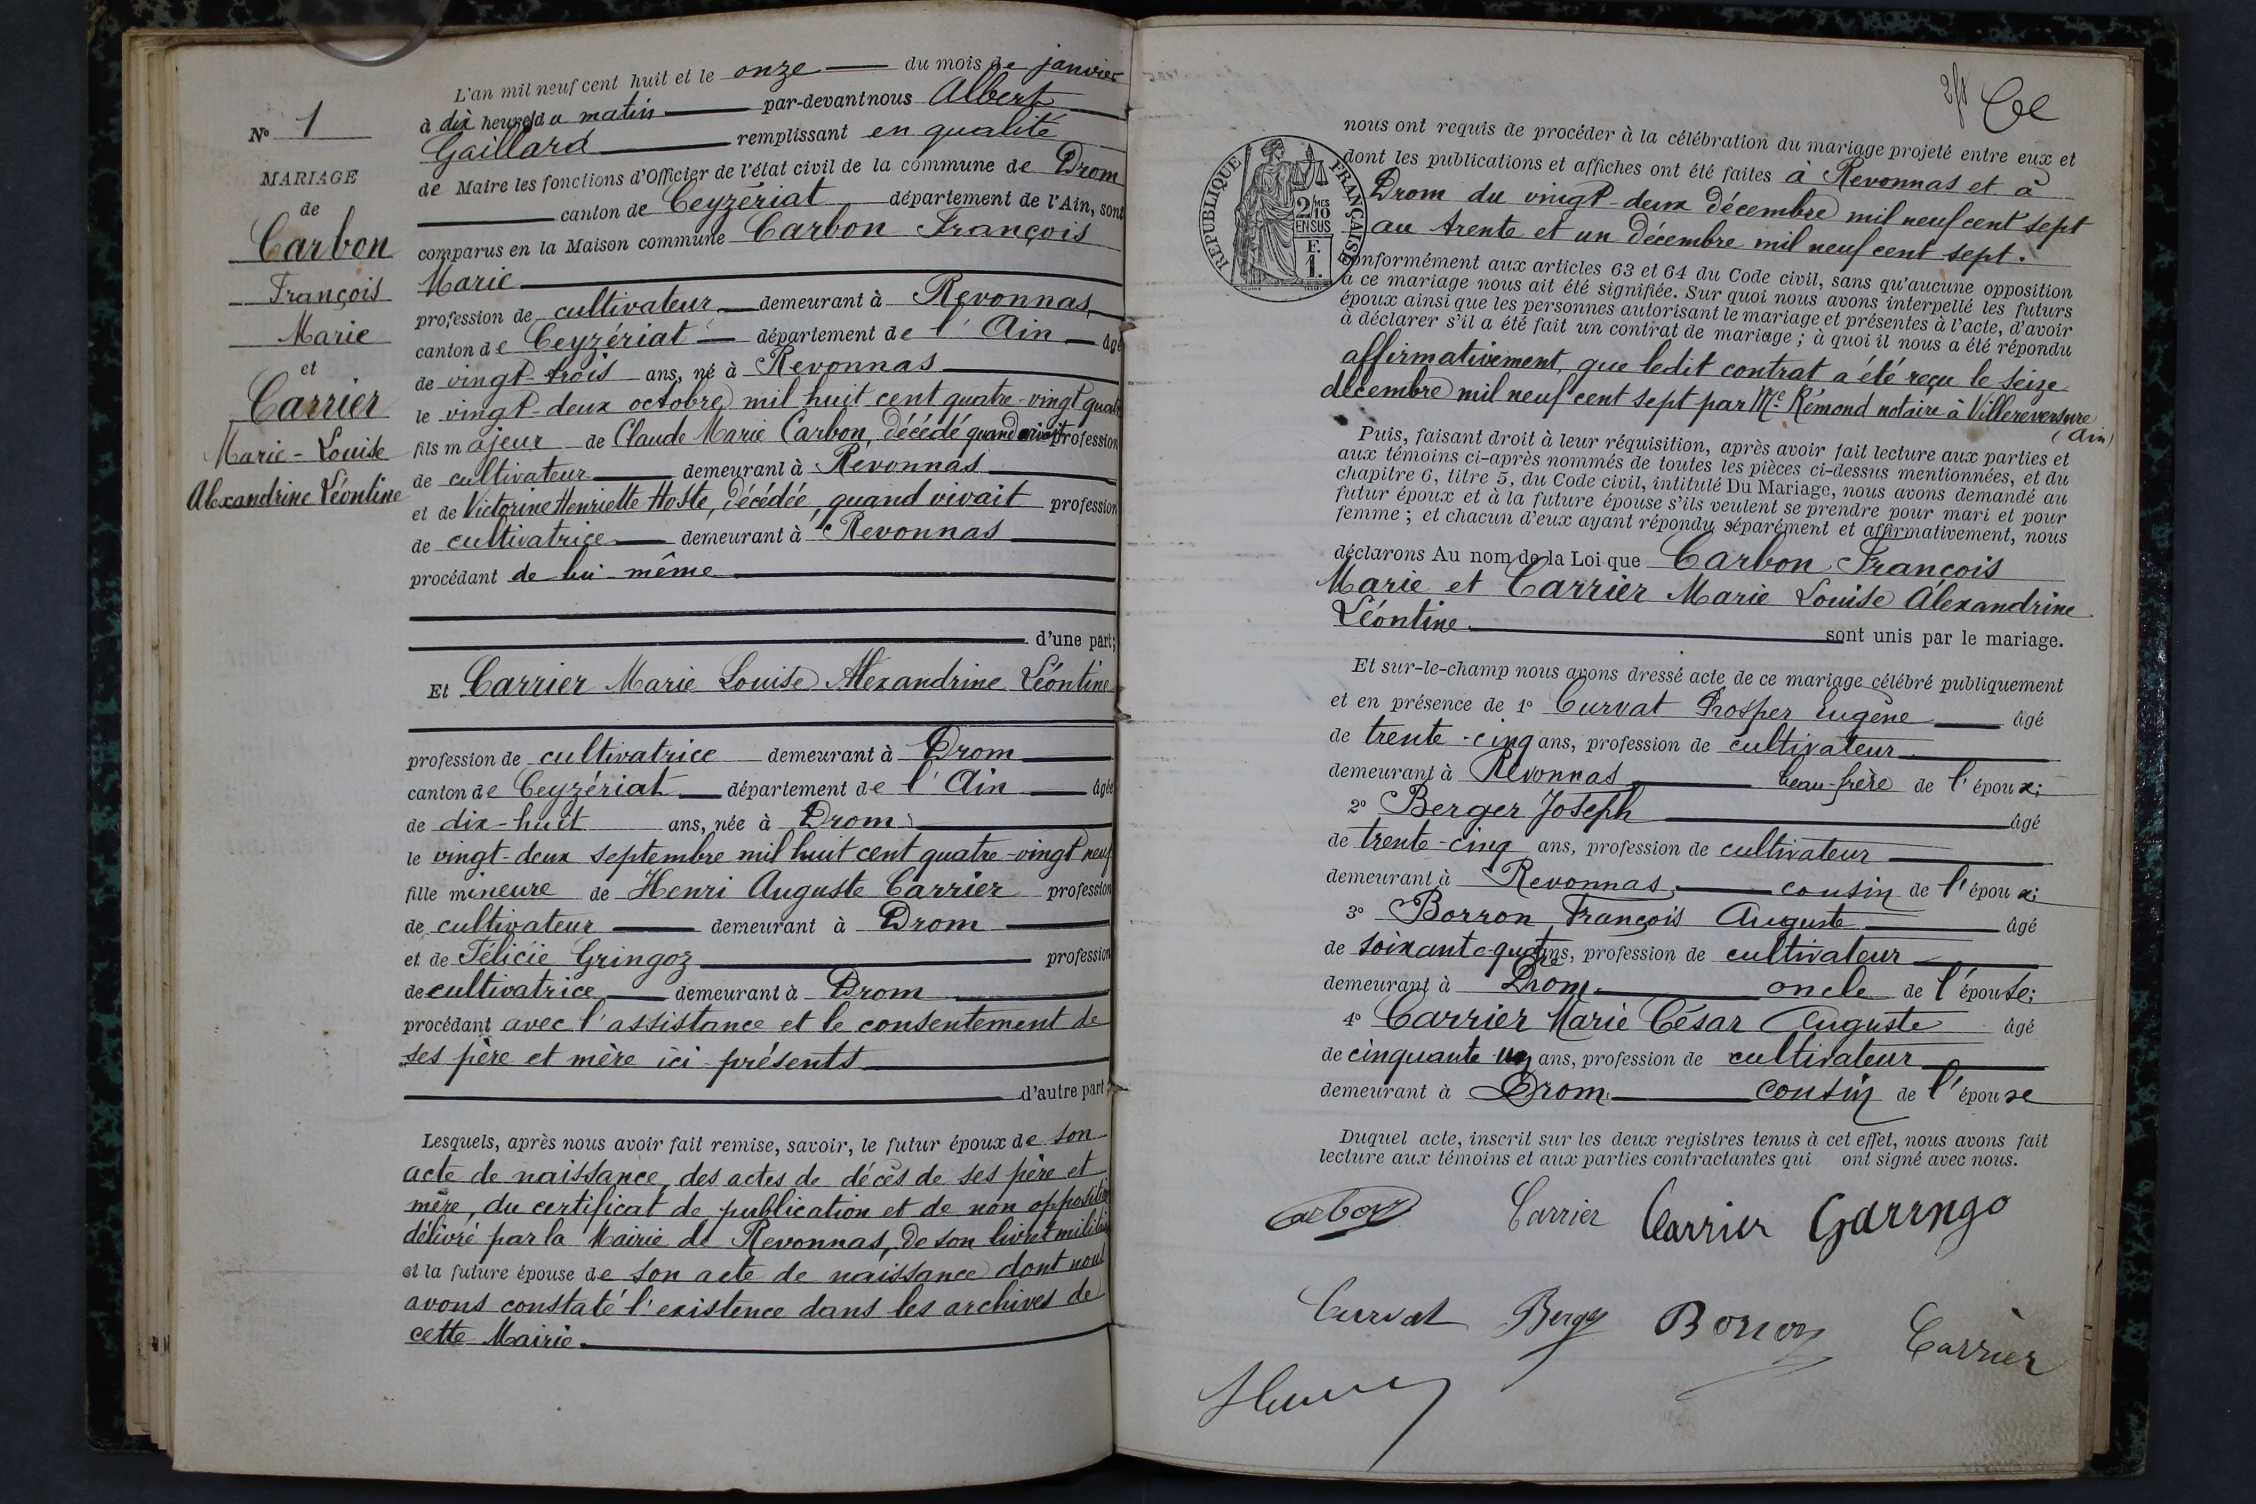 L'an mil neuf cent huit et le onze du mois de janvier
à dix heures du matin par-devant nous Albert
Gaillard remplissant en qualité
de Maire les fonctions d'Officier de l'état civil de la commune de Drom
canton de Ceyzériat département de l'Ain, sont
comparus en la Maison commune Carbon François
Marie
profession de cultivateur demeurant à Revonnas
canton de Ceyzériat département de l'Ain âgé
de vingt-trois ans, né à Revonnas
le vingt-deux octobre mil huit cent quatre-vingt quatre
fils majeur de Claude Marie Carbon, décédé quand vivait profession
de cultivateur demeurant à Revonnas
et de Victorine Henriette Hoste, décédée, quand vivait profession
de cultivatrice demeurant à Revonnas
procédant de lui-même
d'une part;
Et Carrier Marie Louise Alexandrine Léontine
profession de cultivatrice demeurant à Drom
canton de Ceyzériat département de l'Ain âgée
de dix-huit ans, née à Drom
le vingt-deux septembre mil huit cent quatre-vingt neuf
fille mineure de Henri Auguste Carrier profession
de cultivateur demeurant à Drom
et de Félicie Gringoz profession
de cultivatrice demeurant à Drom
procédant avec l'assistance et le consentement de
ses père et mère ici présents
d'autre part;
Lesquels, après nous avoir fait remise, savoir, le futur époux de son
acte de naissance, des actes de décès de ses père et
mère, du certificat de publication et de non opposition
délivré par la Mairie de Revonnas, de son livret militaire
et la future épouse de son acte de naissance dont nous
avons constaté l'existence dans les archives de
cette Mairie.
N° 1
MARIAGE
de
Carbon
François
Marie
et
Carrier
Marie-Louise
Alexandrine Léontine
2/1
REPUBLIQUE FRANÇAISE
2/10 MES
EN SUS
F.
1.
nous ont requis de procéder à la célébration du mariage projeté entre eux et
dont les publications et affiches ont été faites à Revonnas et à
Drom du vingt-deux décembre mil neuf cent sept
au trente et un décembre mil neuf cent sept.
conformément aux articles 63 et 64 du Code civil, sans qu'aucune opposition
à ce mariage nous ait été signifiée. Sur quoi nous avons interpellé les futurs
époux ainsi que les personnes autorisant le mariage et présentes à l'acte, d'avoir
à déclarer s'il a été fait un contrat de mariage ; à quoi il nous a été répondu
affirmativement, que ledit contrat a été reçu le seize
décembre mil neuf cent sept par Me Rémond notaire à Villereversure
(Ain)
Puis, faisant droit à leur réquisition, après avoir fait lecture aux parties et
aux témoins ci-après nommés de toutes les pièces ci-dessus mentionnées, et du
chapitre 6, titre 5, du Code civil, intitulé Du Mariage, nous avons demandé au
futur époux et à la future épouse s'ils veulent se prendre pour mari et pour
femme ; et chacun d'eux ayant répondu séparément et affirmativement, nous
déclarons Au nom de la Loi que Carbon François
Marie et Carrier Marie Louise Alexandrine
Léontine sont unis par le mariage.
Et sur-le-champ nous avons dressé acte de ce mariage célébré publiquement
et en présence de 1° Curvat Prosper Eugène âgé
de trente-cinq ans, profession de cultivateur
demeurant à Revonnas beau-frère de l'époux;
2° Berger Joseph âgé
de trente-cinq ans, profession de cultivateur
demeurant à Revonnas cousin de l'époux;
3° Borron François Auguste âgé
de soixante-quatre ans, profession de cultivateur
demeurant à Drom oncle de l'épouse;
4° Carrier Marie César Auguste âgé
de cinquante-un ans, profession de cultivateur
demeurant à Drom cousin de l'épouse
Duquel acte, inscrit sur les deux registres tenus à cet effet, nous avons fait
lecture aux témoins et aux parties contractantes qui ont signé avec nous.
Carbon Carrier Carrier Garingo
Curvat Berger Borron Carrier